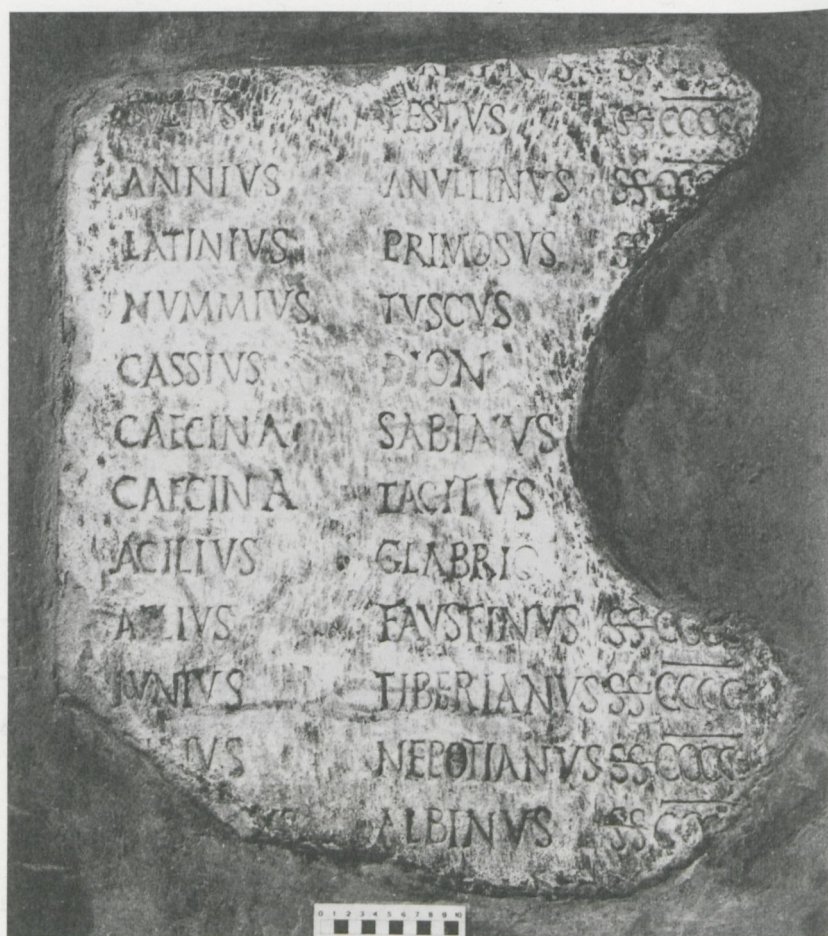 FESTVS SS CCCC
ANNIVS ANVLLINVS SS CCCC
LATINIVS PRIMOSVS
NVMMIVS TVSCVS
CASSIVS DION
CAECINA SABINVS
CAECINA TACITVS
ACILIVS GLABRIO
AELIVS FAVSTINVS SS CCCC
IVNIVS TIBERIANVS SS CCCC
IVS NEPOTIANVS SS CCCC
ALBINVS SS CCCC
0 1 2 3 4 5 6 7 8 9 10